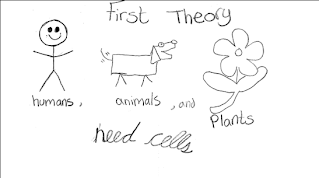 First Theory
humans, animals, and Plants
need cells